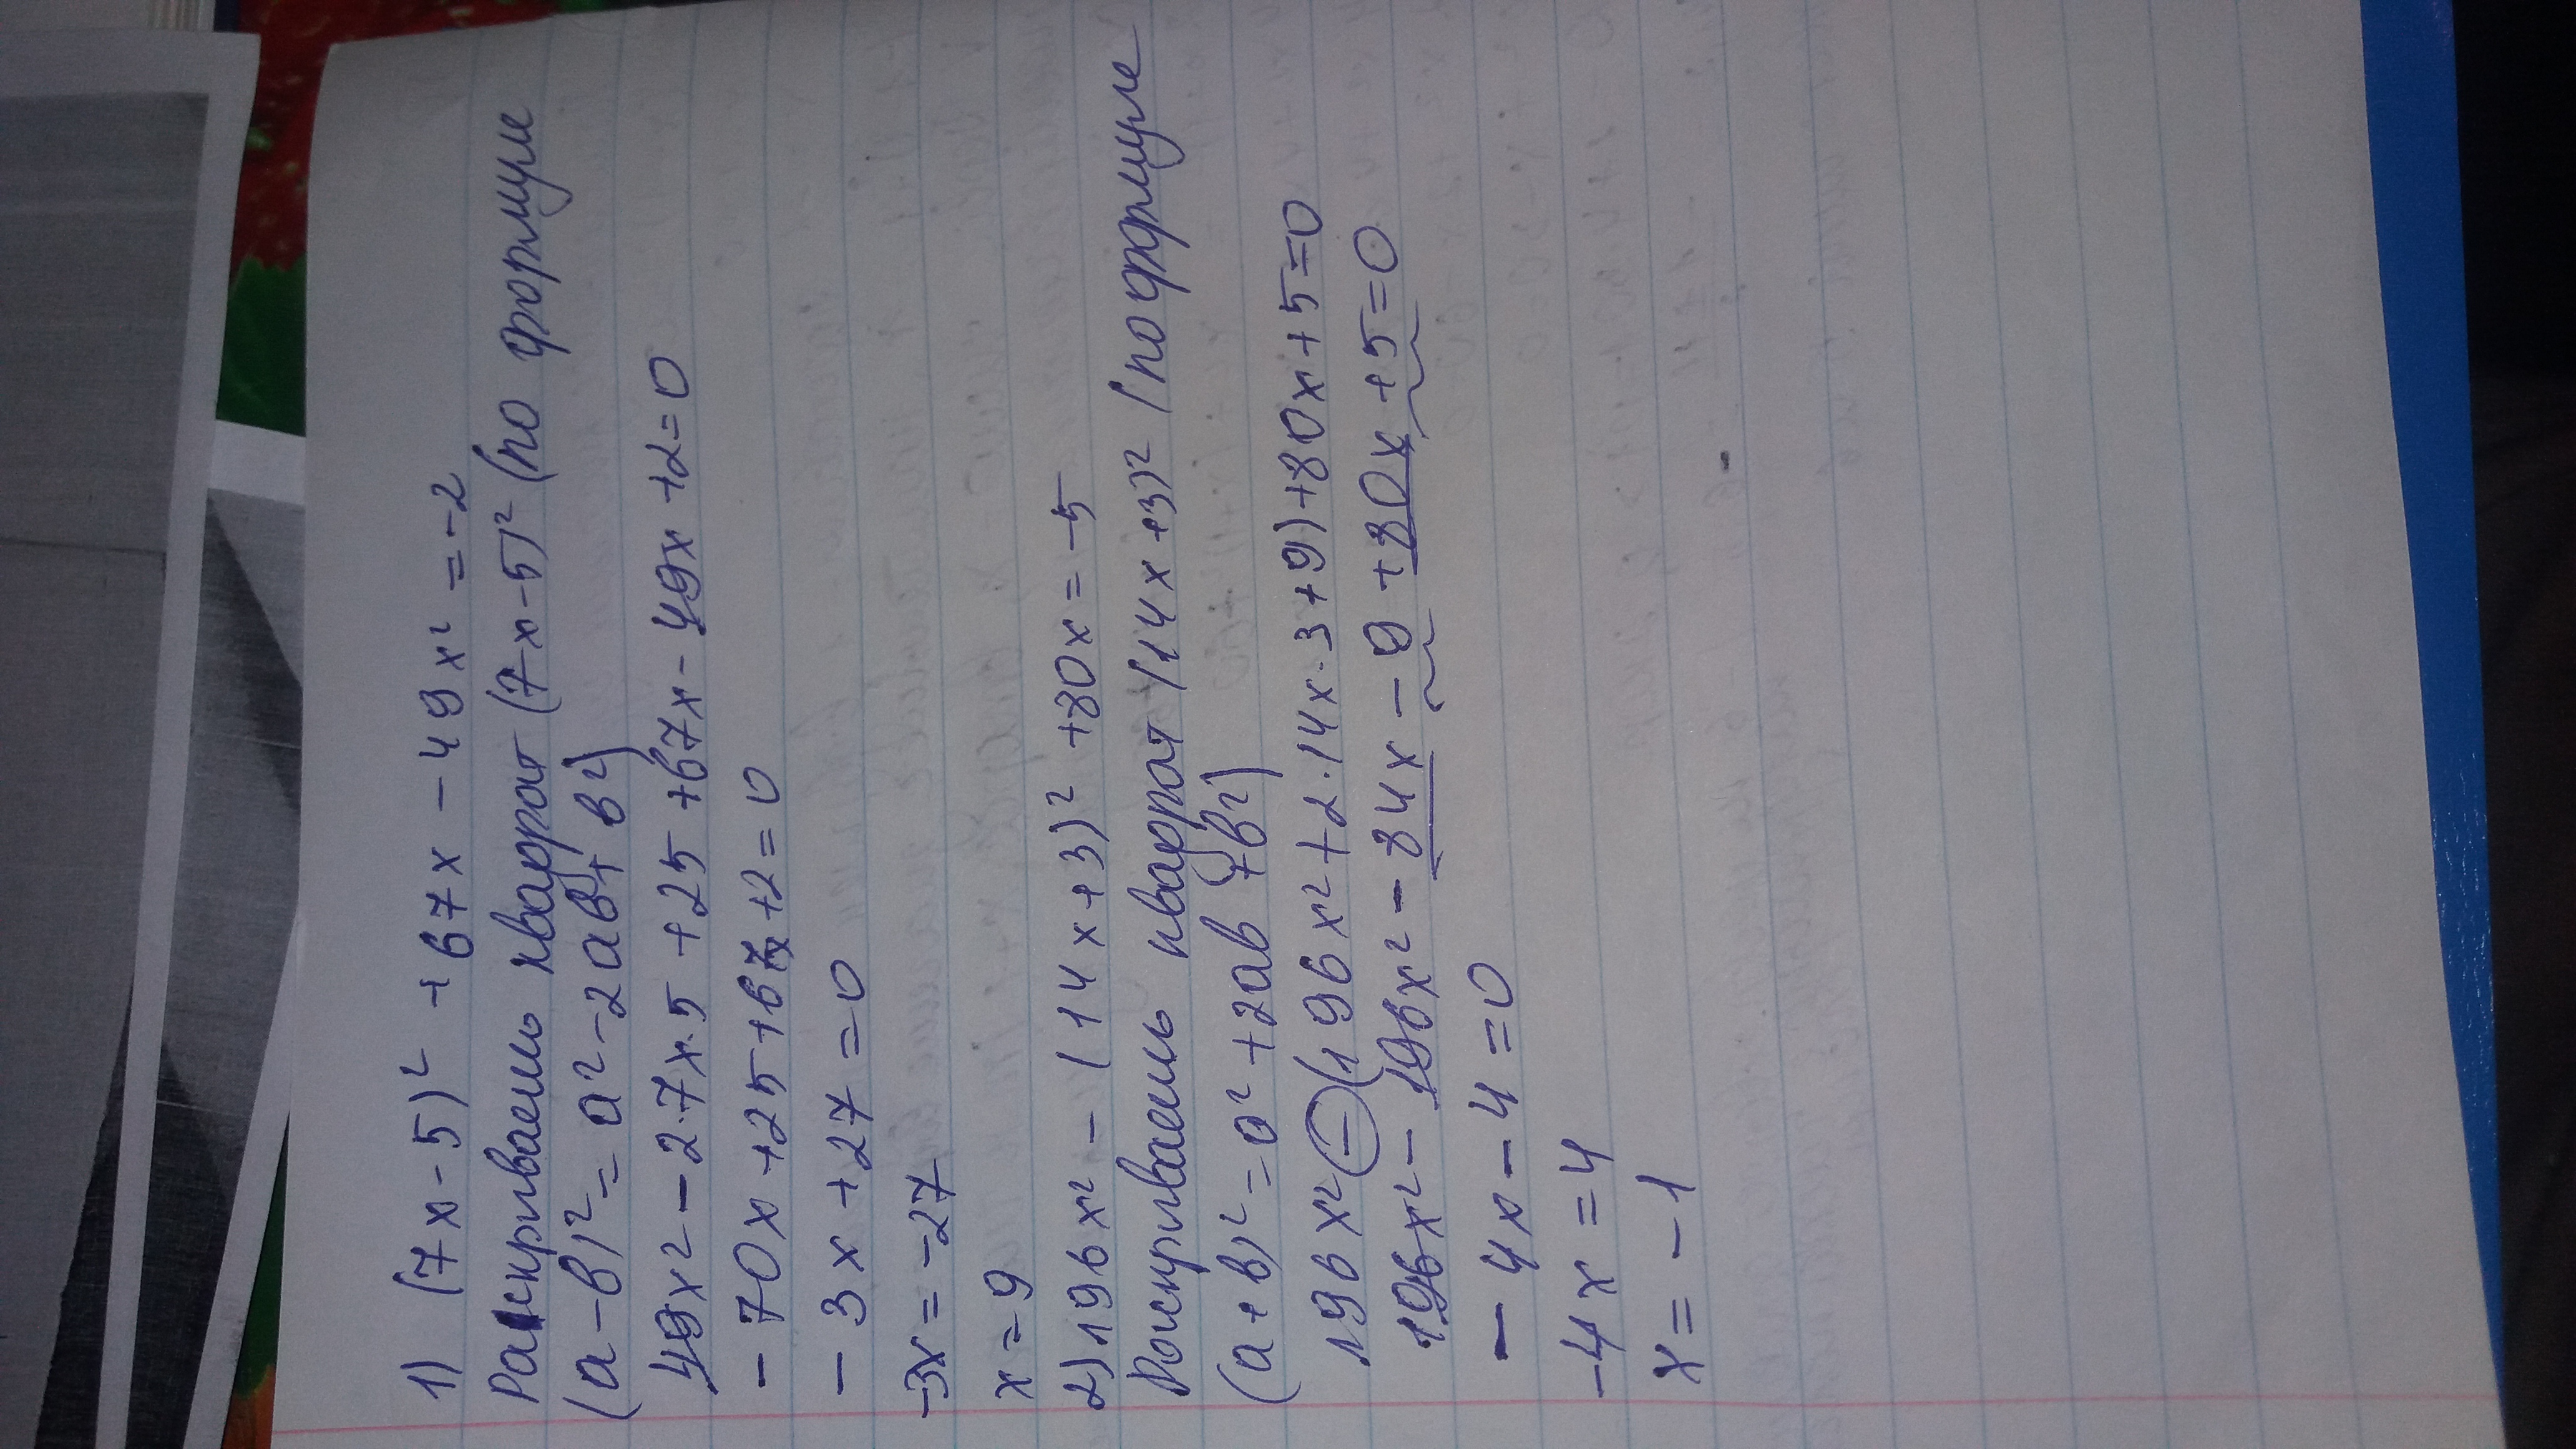 1) (7x-5)² + 67x - 49x² = -2
Раскрываем квадрат (7x-5)² (по формуле
(a-b)² = a²-2ab+b²)
49x² - 2·7x·5 + 25 + 67x - 49x + 2 = 0
- 70x + 25 + 67x + 2 = 0
- 3x + 27 = 0
-3x = -27
x = 9
2) 196x² - (14x+3)² + 80x = -5
Раскрываем квадрат (14x+3)² (по формуле
(a+b)² = a² + 2ab + b²)
196x² - (196x² + 2·14x·3 + 9) + 80x + 5 = 0
196x² - 196x² - 84x - 9 + 80x + 5 = 0
- 4x - 4 = 0
-4x = 4
x = -1